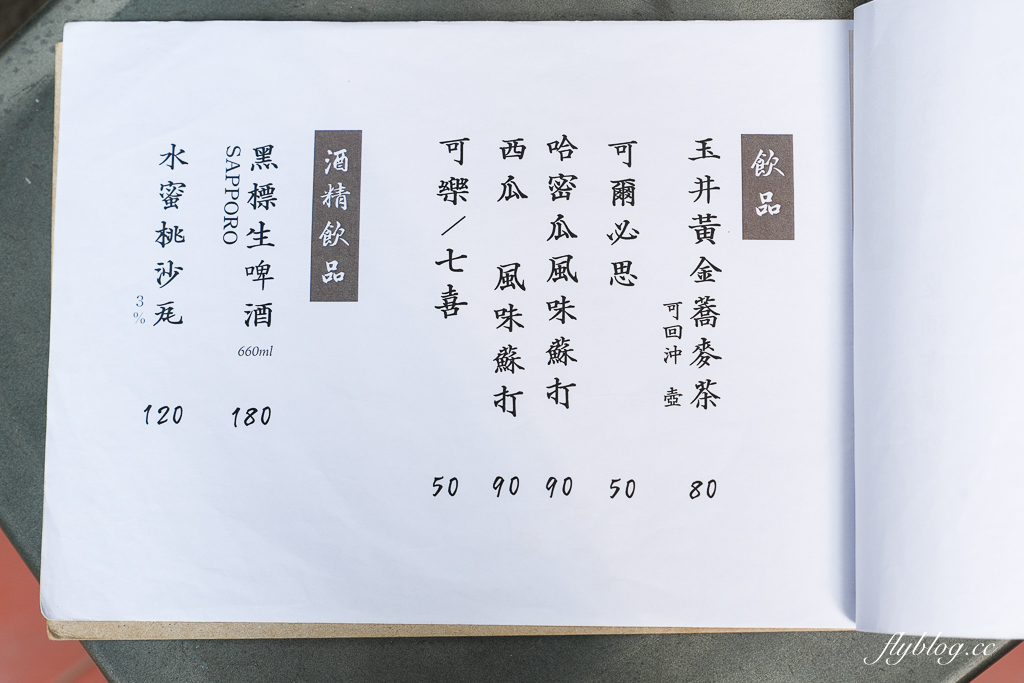 飲品
玉井黃金蕎麥茶
可回沖 壺
80
可爾必思
50
哈密瓜風味蘇打
90
西瓜 風味蘇打
90
可樂／七喜
50
酒精飲品
黑標生啤酒
SAPPORO
660ml
180
水蜜桃沙瓦
3%
120
flyblog.cc